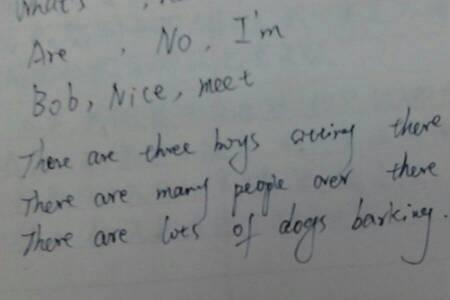 What's
Are , No, I'm
Bob, Nice, meet
There are three boys sitting there
There are many people over there
There are lots of dogs barking.